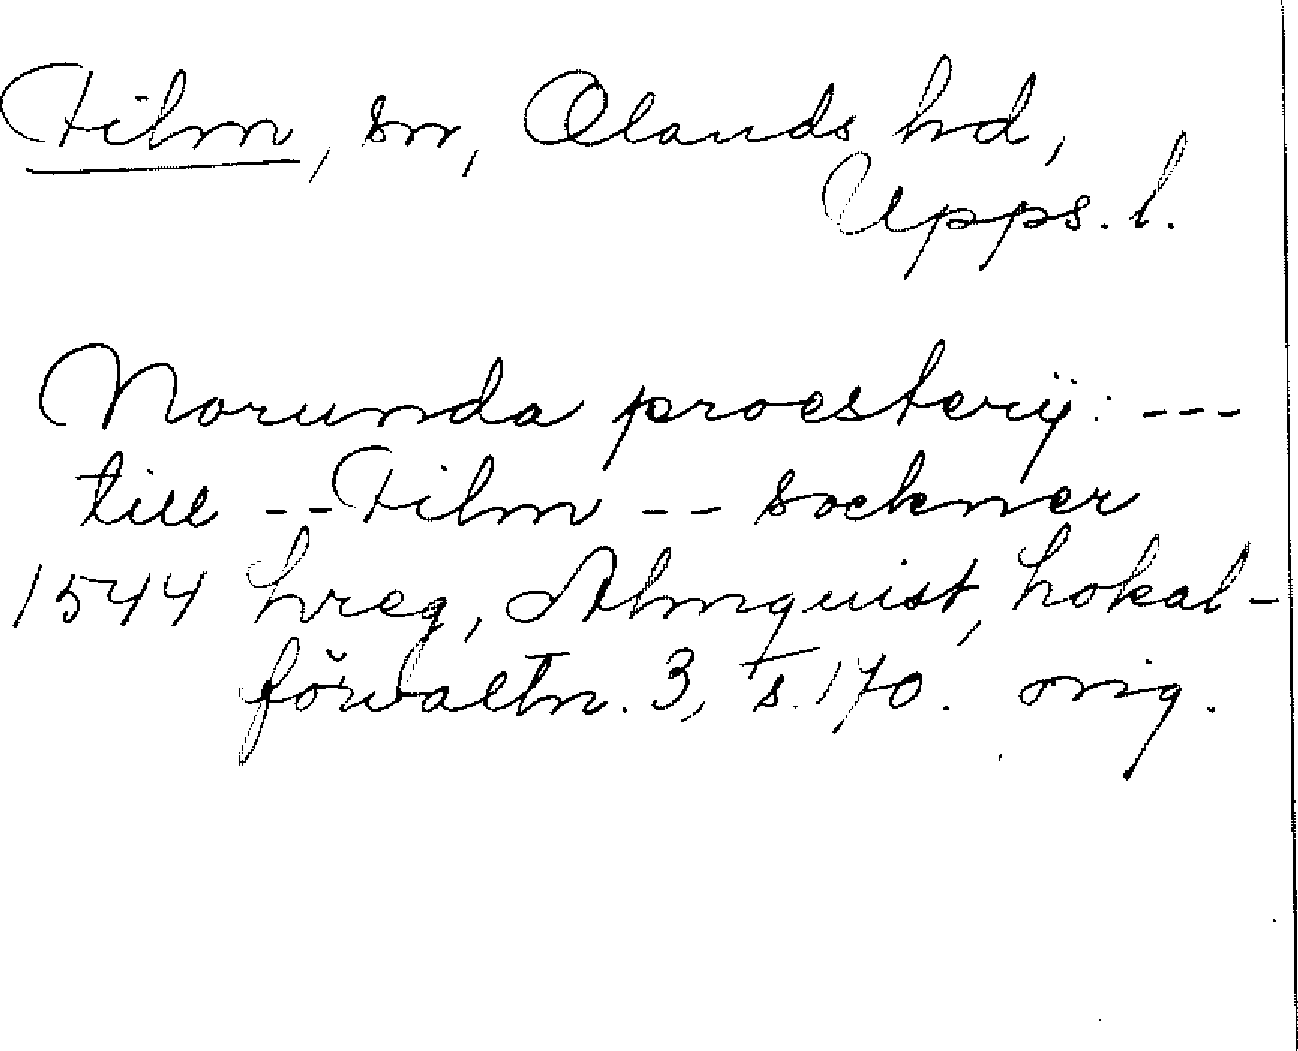 Film, sn, Olands hd,
Upps. l.
Norunda proesterij: ---
till -- Film -- sockner
1544 hreg, Almquist, Lokal-
förvaltn. 3, s. 170. orig.